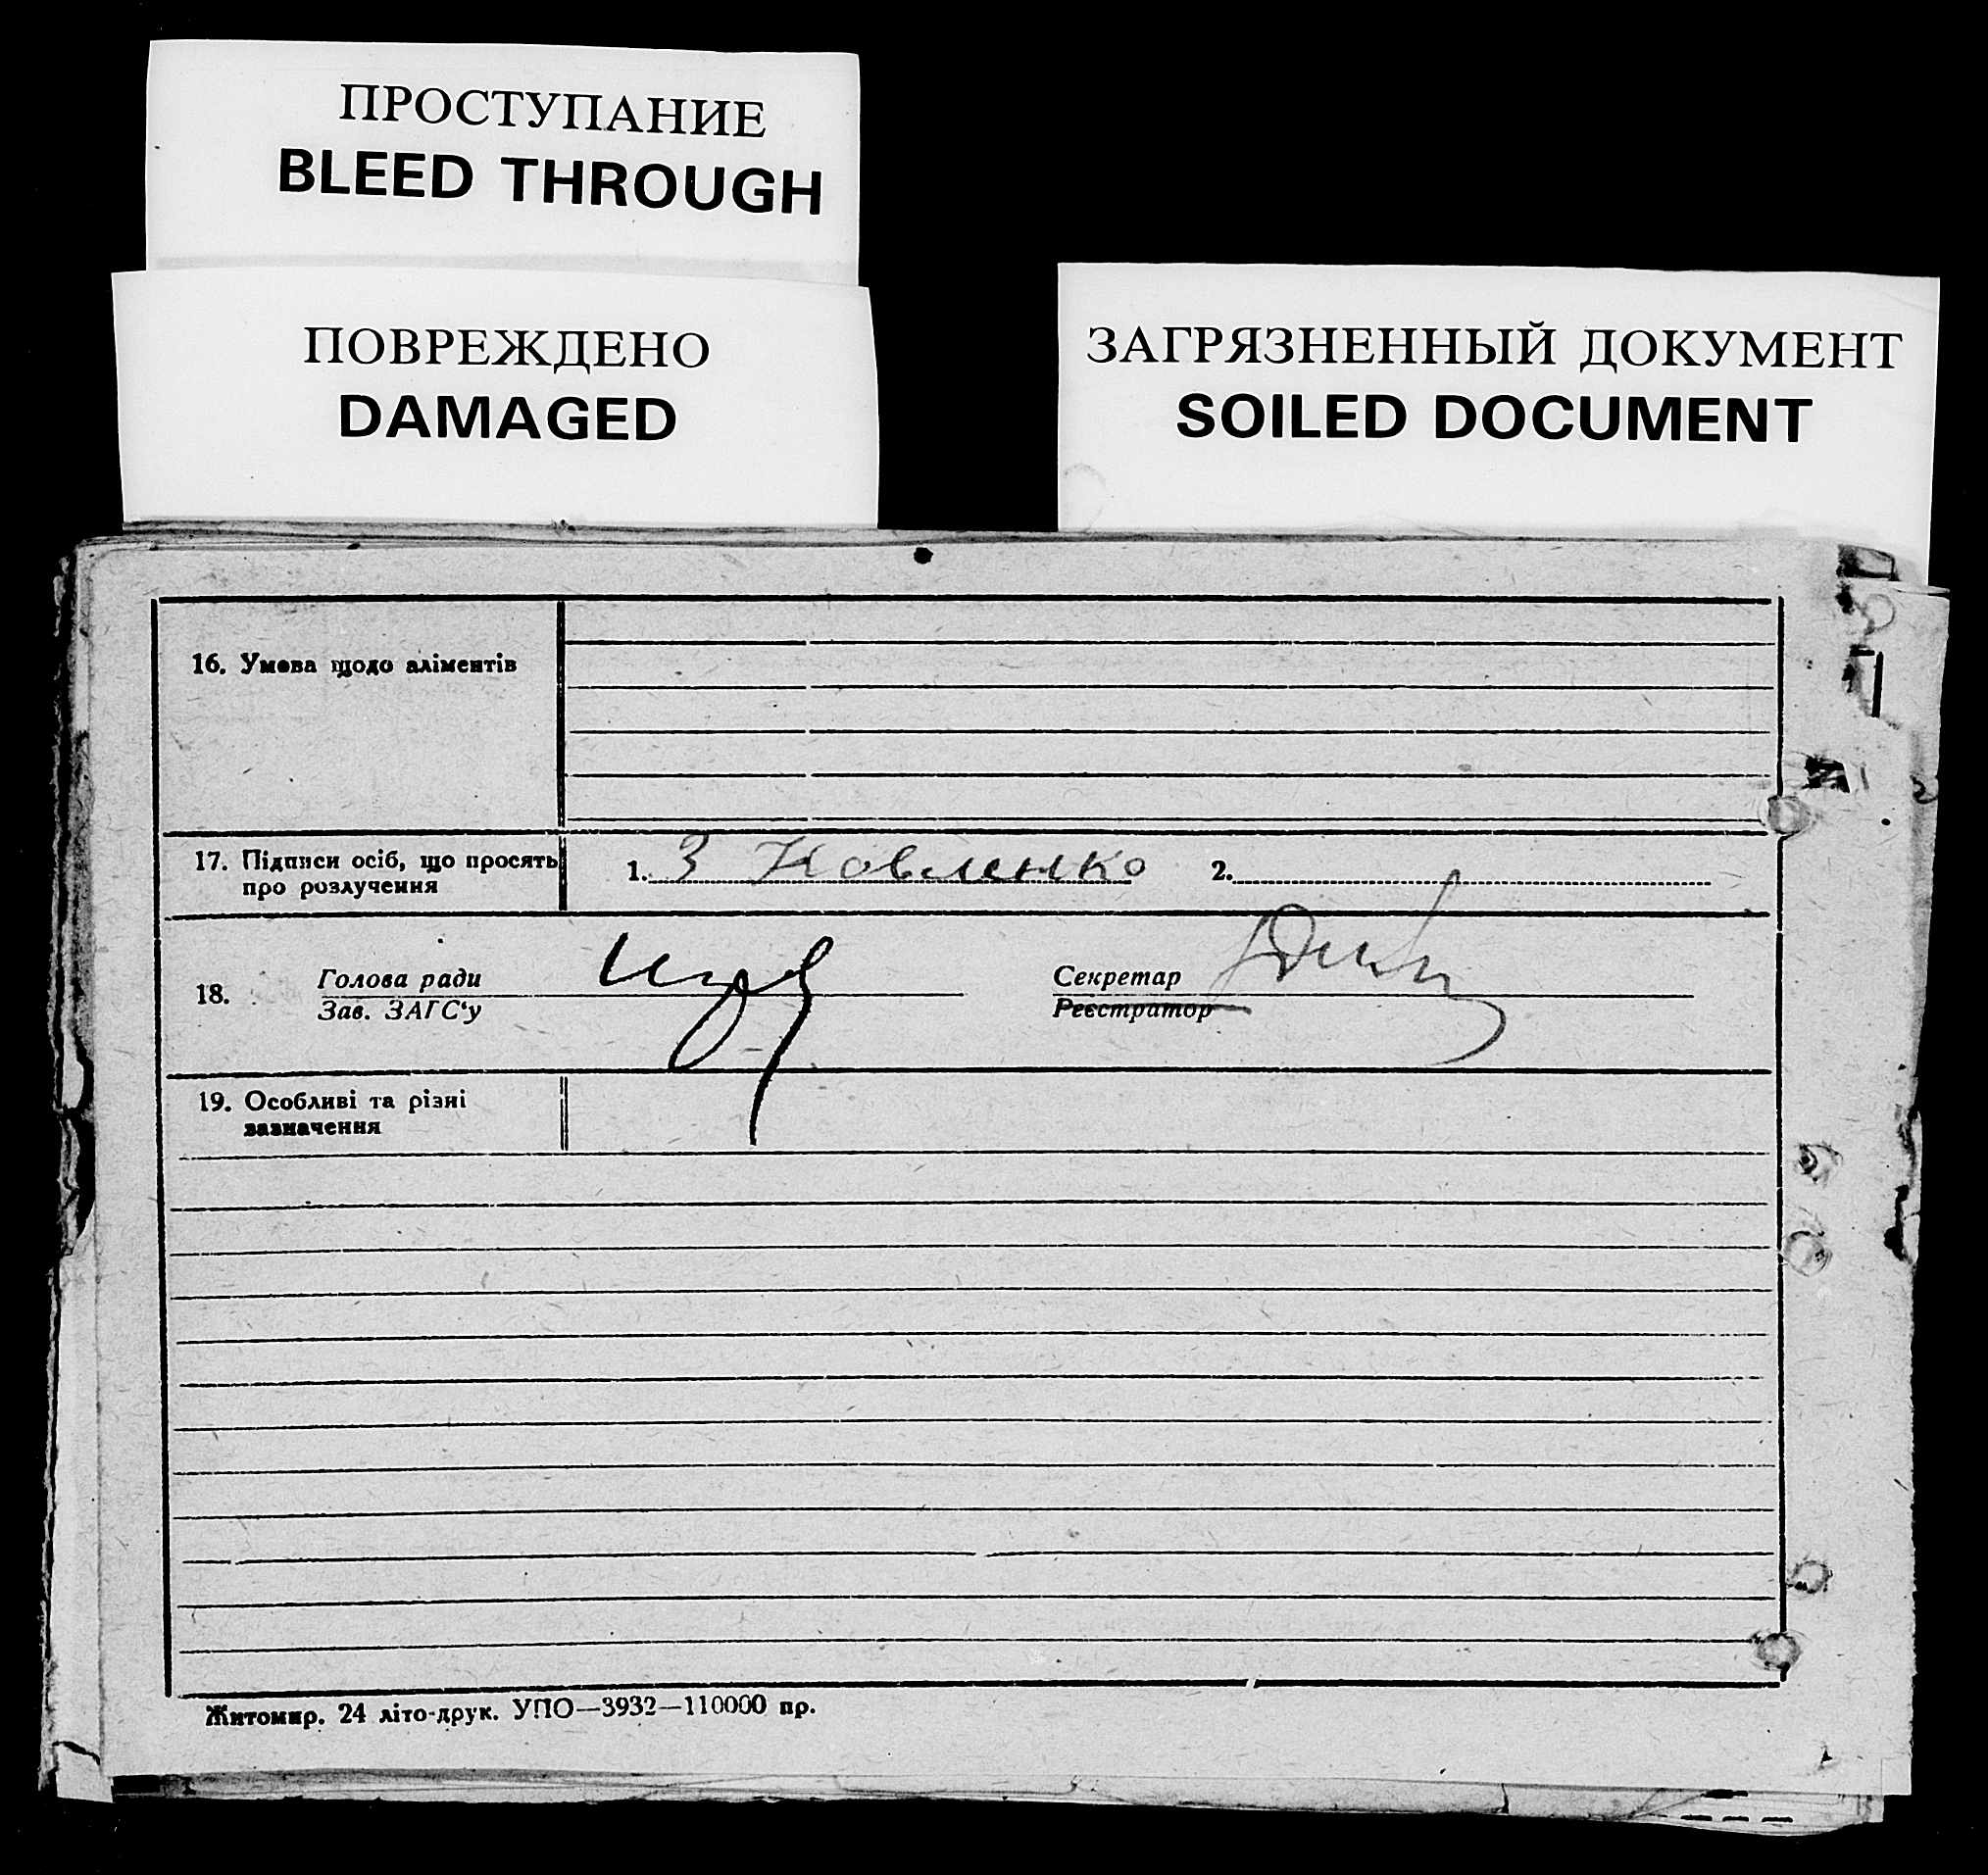 ПРОСТУПАНИЕ
BLEED THROUGH
ПОВРЕЖДЕНО
DAMAGED
ЗАГРЯЗНЕННЫЙ ДОКУМЕНТ
SOILED DOCUMENT
16. Умова щодо аліментів
17. Підписи осіб, що просять
про розлучення
1. З Ковленко 2.
18.
Голова ради
Зав. ЗАГС‘у
Секретар
Реєстратор
19. Особливі та різні
зазначення
Житомир. 24 літо-друк. УПО—3932—110000 пр.